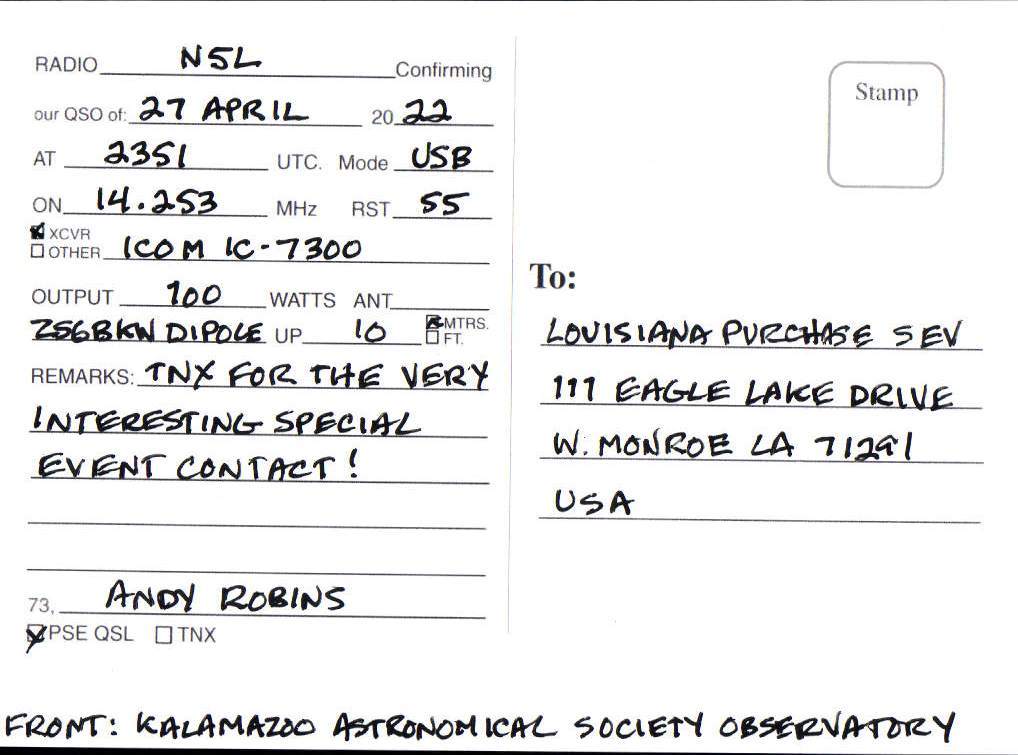 RADIO N5L Confirming
our QSO of: 27 APRIL 2022
AT 2351 UTC. Mode USB
ON 14.253 MHz RST 55
XCVR
OTHER ICOM IC-7300
OUTPUT 100 WATTS ANT
ZS6BKW DIPOLE UP 10 MTRS.
FT.
REMARKS: TNX FOR THE VERY
INTERESTING SPECIAL
EVENT CONTACT!
73, ANDY ROBINS
PSE QSL TNX
Stamp
To:
LOUISIANA PURCHASE SEV
111 EAGLE LAKE DRIVE
W. MONROE LA 71291
USA
FRONT: KALAMAZOO ASTRONOMICAL SOCIETY OBSERVATORY